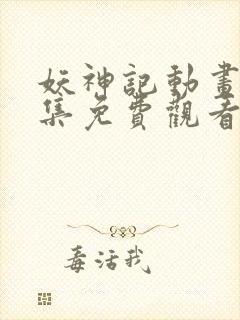 妖神記動畫
集免費觀看
毒活我